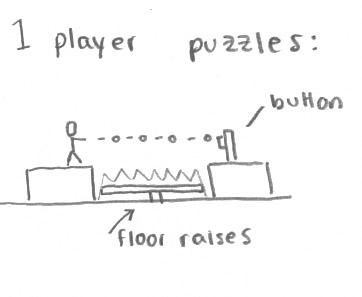 1 player puzzles:
button
floor raises